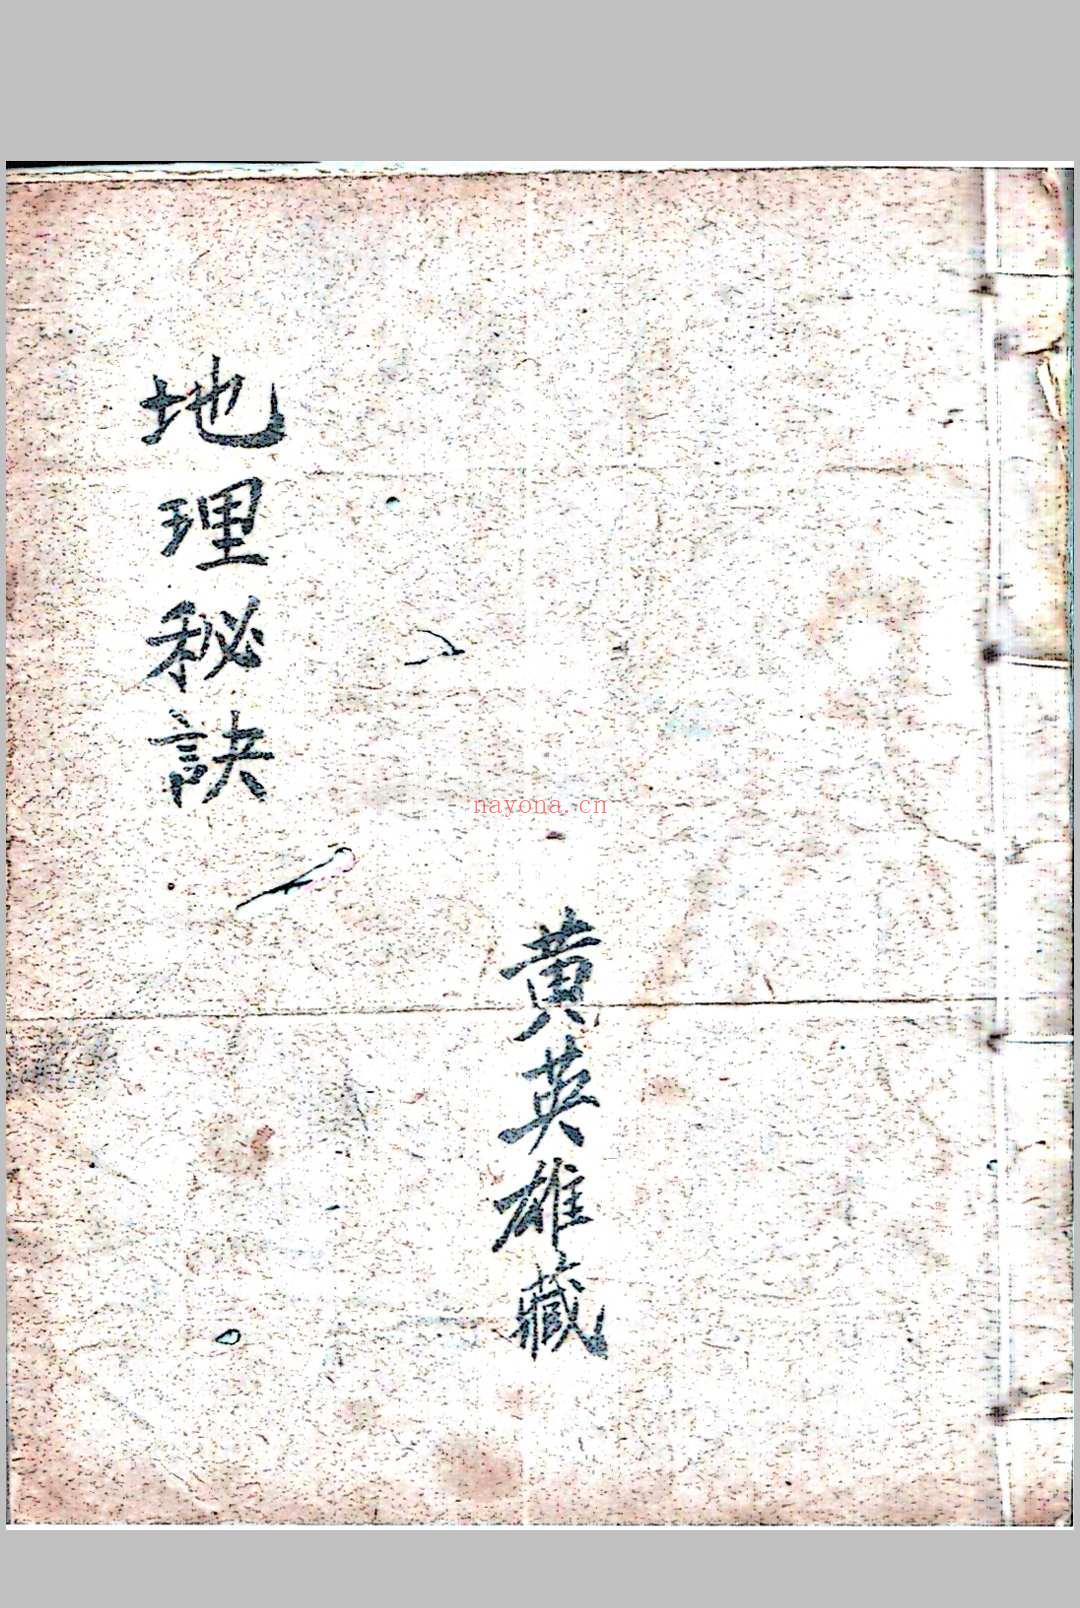 地理秘訣
黄英雄藏
nayona.cn